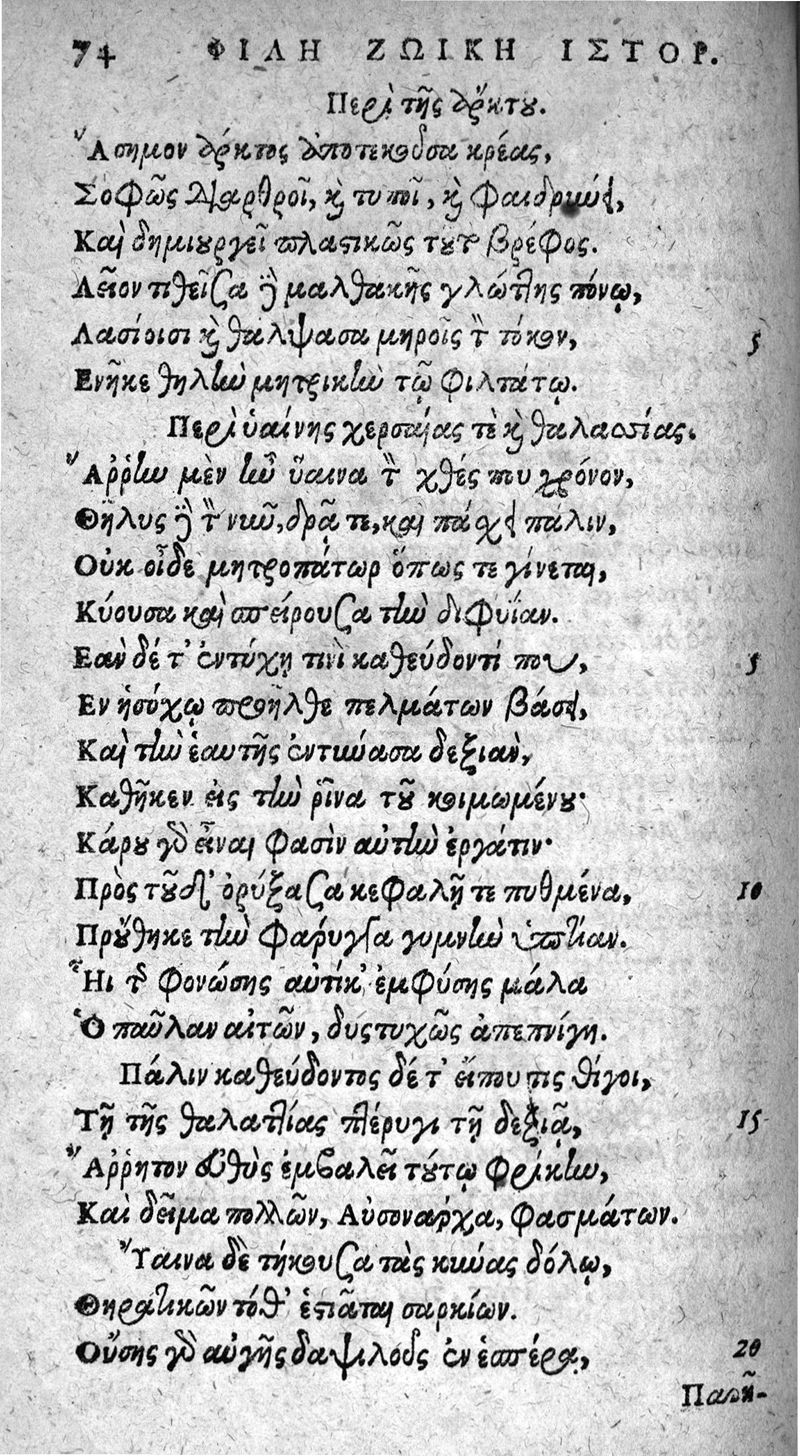 74 ΦΙΛΗ ΖΩΙΚΗ ΙΣΤΟΡ.
Περὶ τῆς ἄρκτου.
Ἄσημον ἄρκτος ἀποτεκοῦσα κρέας,
Σοφῶς διαρθροῖ, καὶ τυποῖ, καὶ φαιδρύνει,
Καὶ δημιουργεῖ πλαστικῶς τοῦτ βρέφος.
Λεῖον τιθεῖσα δὲ μαλθακῆς γλώττης πόνῳ,
Λασίοισι καὶ θάλψασα μηροῖς τὸν τόκον, 5
Ενῆκε θηλὴν μητρικὴν τῷ φιλτάτῳ.
Περὶ ὑαίνης χερσαίας τὲ καὶ θαλασσίας.
Ἄῤῥην μὲν ἦν ὕαινα τὸν χθές που χρόνον,
Θῆλυς δὲ τὸν νῦν, δρᾷ τε, καὶ πάσχει πάλιν,
Οὐκ οἶδε μητροπάτωρ ὅπως τε γίνεται,
Κύουσα καὶ σπείρουσα τὴν διφυΐαν.
Εαν δέ τ' ἐντύχῃ τινὶ καθεύδοντί που, 5
Εν ἡσύχῳ προῆλθε πελμάτων βάσει,
Καὶ τὴν ἑαυτῆς ἐντινάασα δεξιὰν,
Καθῆκεν εἰς τὴν ῥῖνα τοῦ κοιμωμένου·
Κάρου γὰρ εἶναι φασὶν αὐτὴν ἐργάτιν·
Πρὸς τοῦδ' ὀρύξασα κεφαλῇ τε πυθμένα, 10
Προὔθηκε τὴν φάρυγγα γυμνὴν ὑπτίαν.
Ἧι τῆς φονώσης αὐτίκ' ἐμφύσης μάλα
Ὁ παῦλαν αἰτῶν, δυςτυχῶς ἀπεπνίγη.
Πάλιν καθεύδοντος δέ τ' εἴπου τις θίγοι,
Τῇ τῆς θαλαττίας πτέρυγι τῇ δεξιᾷ, 15
Ἄῤῥητον εὐθὺς ἐμβαλεῖ τούτῳ φρίκην,
Καὶ δεῖμα πολλῶν, Αὐσονάρχα, φασμάτων.
Ὕαινα δὲ τήκουσα τὰς κύνας δόλῳ,
Θηρατικῶν τόθ' ἑστιᾶται σαρκίων.
Οὔσης γὰρ αὐγῆς δαψιλοῦς ἐν ἑσπέρᾳ, 20
Πασῆ-